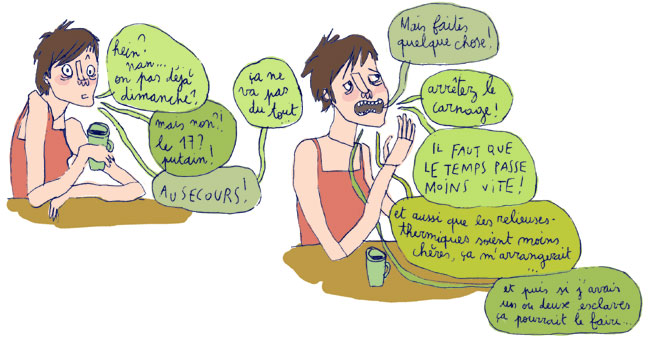 hein?
nan...
on pas déjà
dimanche?
mais non?!
le 17?
putain!
AU SECOURS!
ça ne
va pas
du tout
Mais faites
quelque chose!
arrêtez le
carnage!
IL FAUT QUE
LE TEMPS PASSE
MOINS VITE!
et aussi que les relieuses-
thermiques soient moins
chères, ça m'arrangerait
...
et puis si j'avais
un ou deux esclaves
ça pourrait le faire...